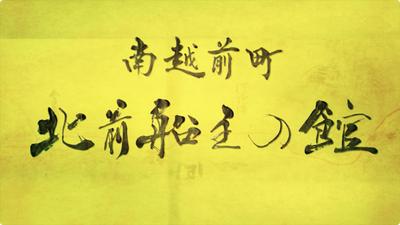 南越前町
北前船主の館